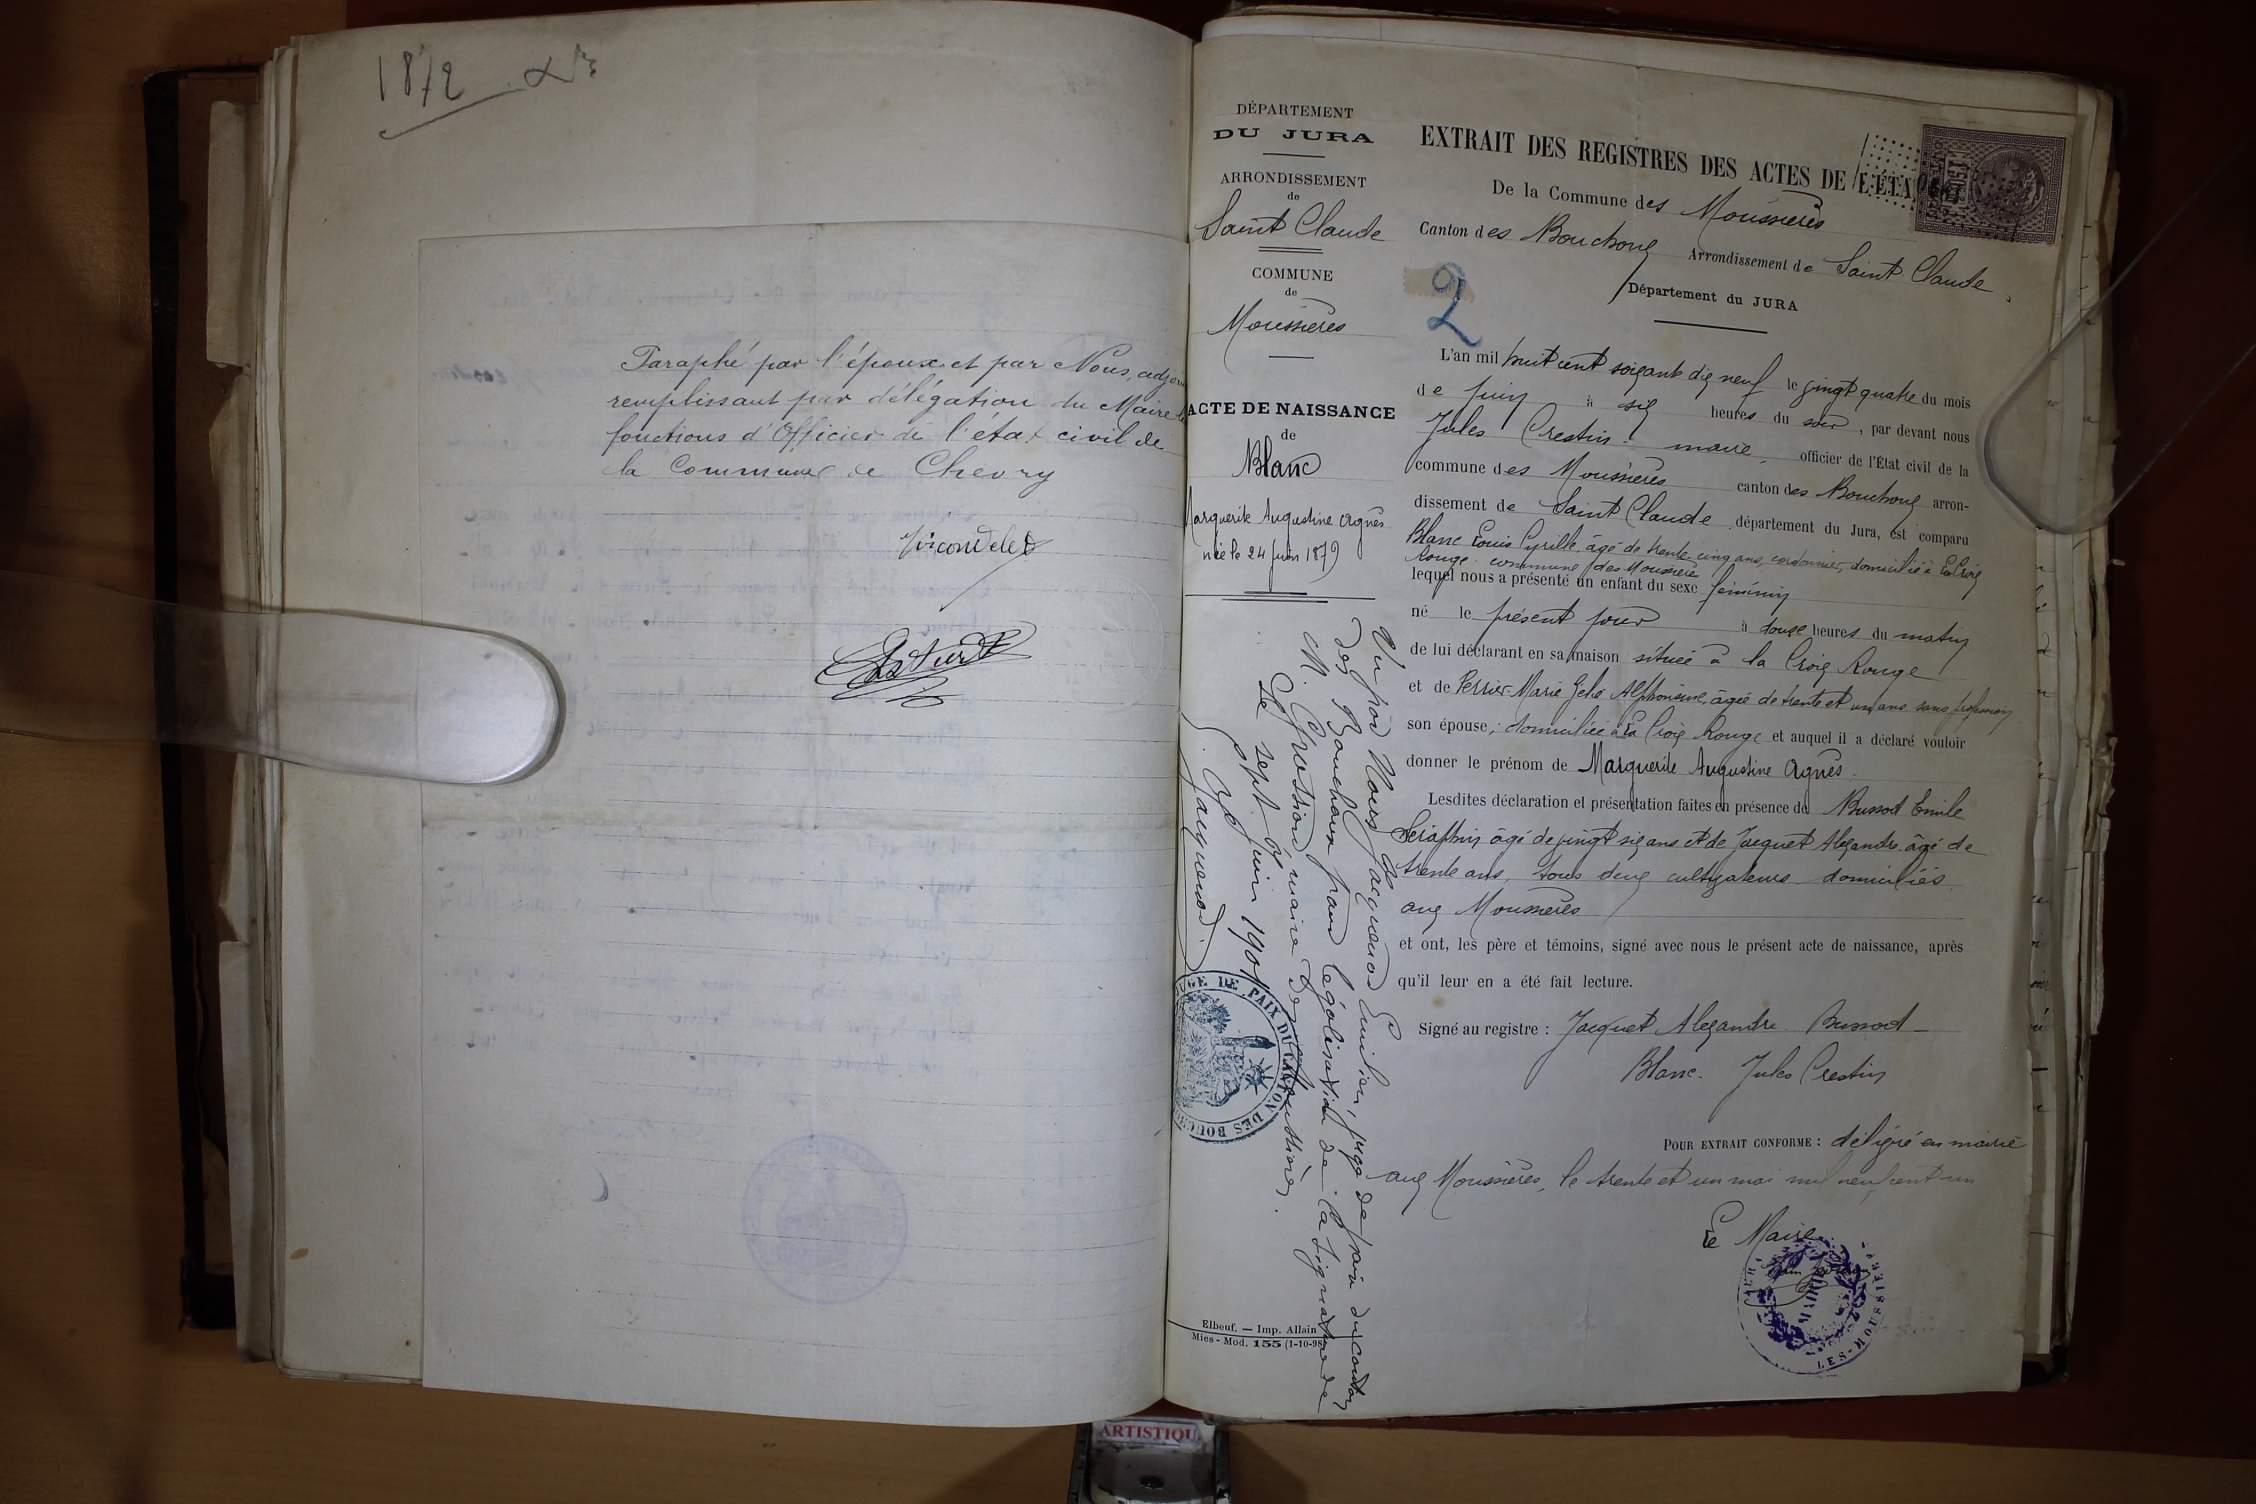 1872
Paraphé par l'époux et par Nous, adjoint
remplissant par délégation du Maire les
fonctions d'Officier de l'état civil de
la Commune de Chevry
DÉPARTEMENT
DU JURA
ARRONDISSEMENT
de
Saint Claude
COMMUNE
de
Moussières
ACTE DE NAISSANCE
de
Blanc
Marguerite Augustine Agnès
née le 24 juin 1879
Vu par Nous Jacquenod Emilien, juge de paix du canton
des Bouchoux pour légalisation de la signature de
M. Grossiord, maire des Moussières.
Le sept juin 1901
Jacquenod.
JUGE DE PAIX DU CANTON DES BOUCHOUX
Elbeuf. — Imp. Allain
Mies - Mod. 155 (1-10-98)
EXTRAIT DES REGISTRES DES ACTES DE L'ÉTA
De la Commune des Moussières
Canton des Bouchoux Arrondissement de Saint Claude
Département du JURA
2
L'an mil huit cent soixante dix neuf le vingt quatre du mois
de juin à six heures du soir, par devant nous
Jules Crestin maire, officier de l'État civil de la
commune des Moussières canton des Bouchoux arron-
dissement de Saint Claude département du Jura, est comparu
Blanc Louis Cyrille, âgé de trente cinq ans, cordonnier, domicilié à La Croix
Rouge commune des Moussières
lequel nous a présenté un enfant du sexe féminin
né le présent jour à douze heures du matin
de lui déclarant en sa maison située à la Croix Rouge
et de Perrier Marie Alphonsine, âgée de trente et un ans sans profession
son épouse, domiciliée à la Croix Rouge et auquel il a déclaré vouloir
donner le prénom de Marguerite Augustine Agnès.
Lesdites déclaration et présentation faites en présence de Bussod Emile
Séraphin âgé de vingt six ans et de Jacquet Alexandre âgé de
trente ans, tous deux cultivateurs domiciliés
aux Moussières
et ont, les père et témoins, signé avec nous le présent acte de naissance, après
qu'il leur en a été fait lecture.
Signé au registre : Jacquet Alexandre Bussod
Blanc. Jules Crestin
POUR EXTRAIT CONFORME : délivré en mairie
aux Moussières, le trente et un mai mil neuf cent un
Le Maire
MAIRIE
LES-MOUSSIÈRES
ARTISTIQU